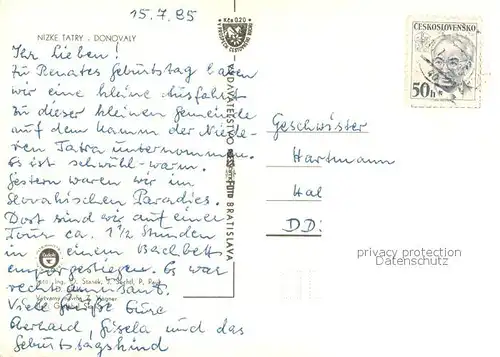 15.7.85
NÍZKE TATRY - DONOVALY
Ihr Lieben!
Zu Renates Geburtstag haben
wir eine kleine Ausfahrt
zu dieser kleinen Gemeinde
auf dem Kamm der Niede-
ren Tatra unternommen.
Es ist schwühl-warm.
Gestern waren wir im
Slovakischen Paradies.
Dort sind wir auf einer
Tour ca. 1 1/2 Stunden
in einem Bachbett
emporgestiegen. Es war
recht amüsant.
Viele Grüße Eure
Gerhard, Gisela und das
Geburtstagskind
Kčs 0,20
VYDAVATEĽSTVO
BRATISLAVA
ČESKOSLOVENSKO
50h
Geschwister
Hartmann
Hal
DD:
privacy protection
Datenschutz